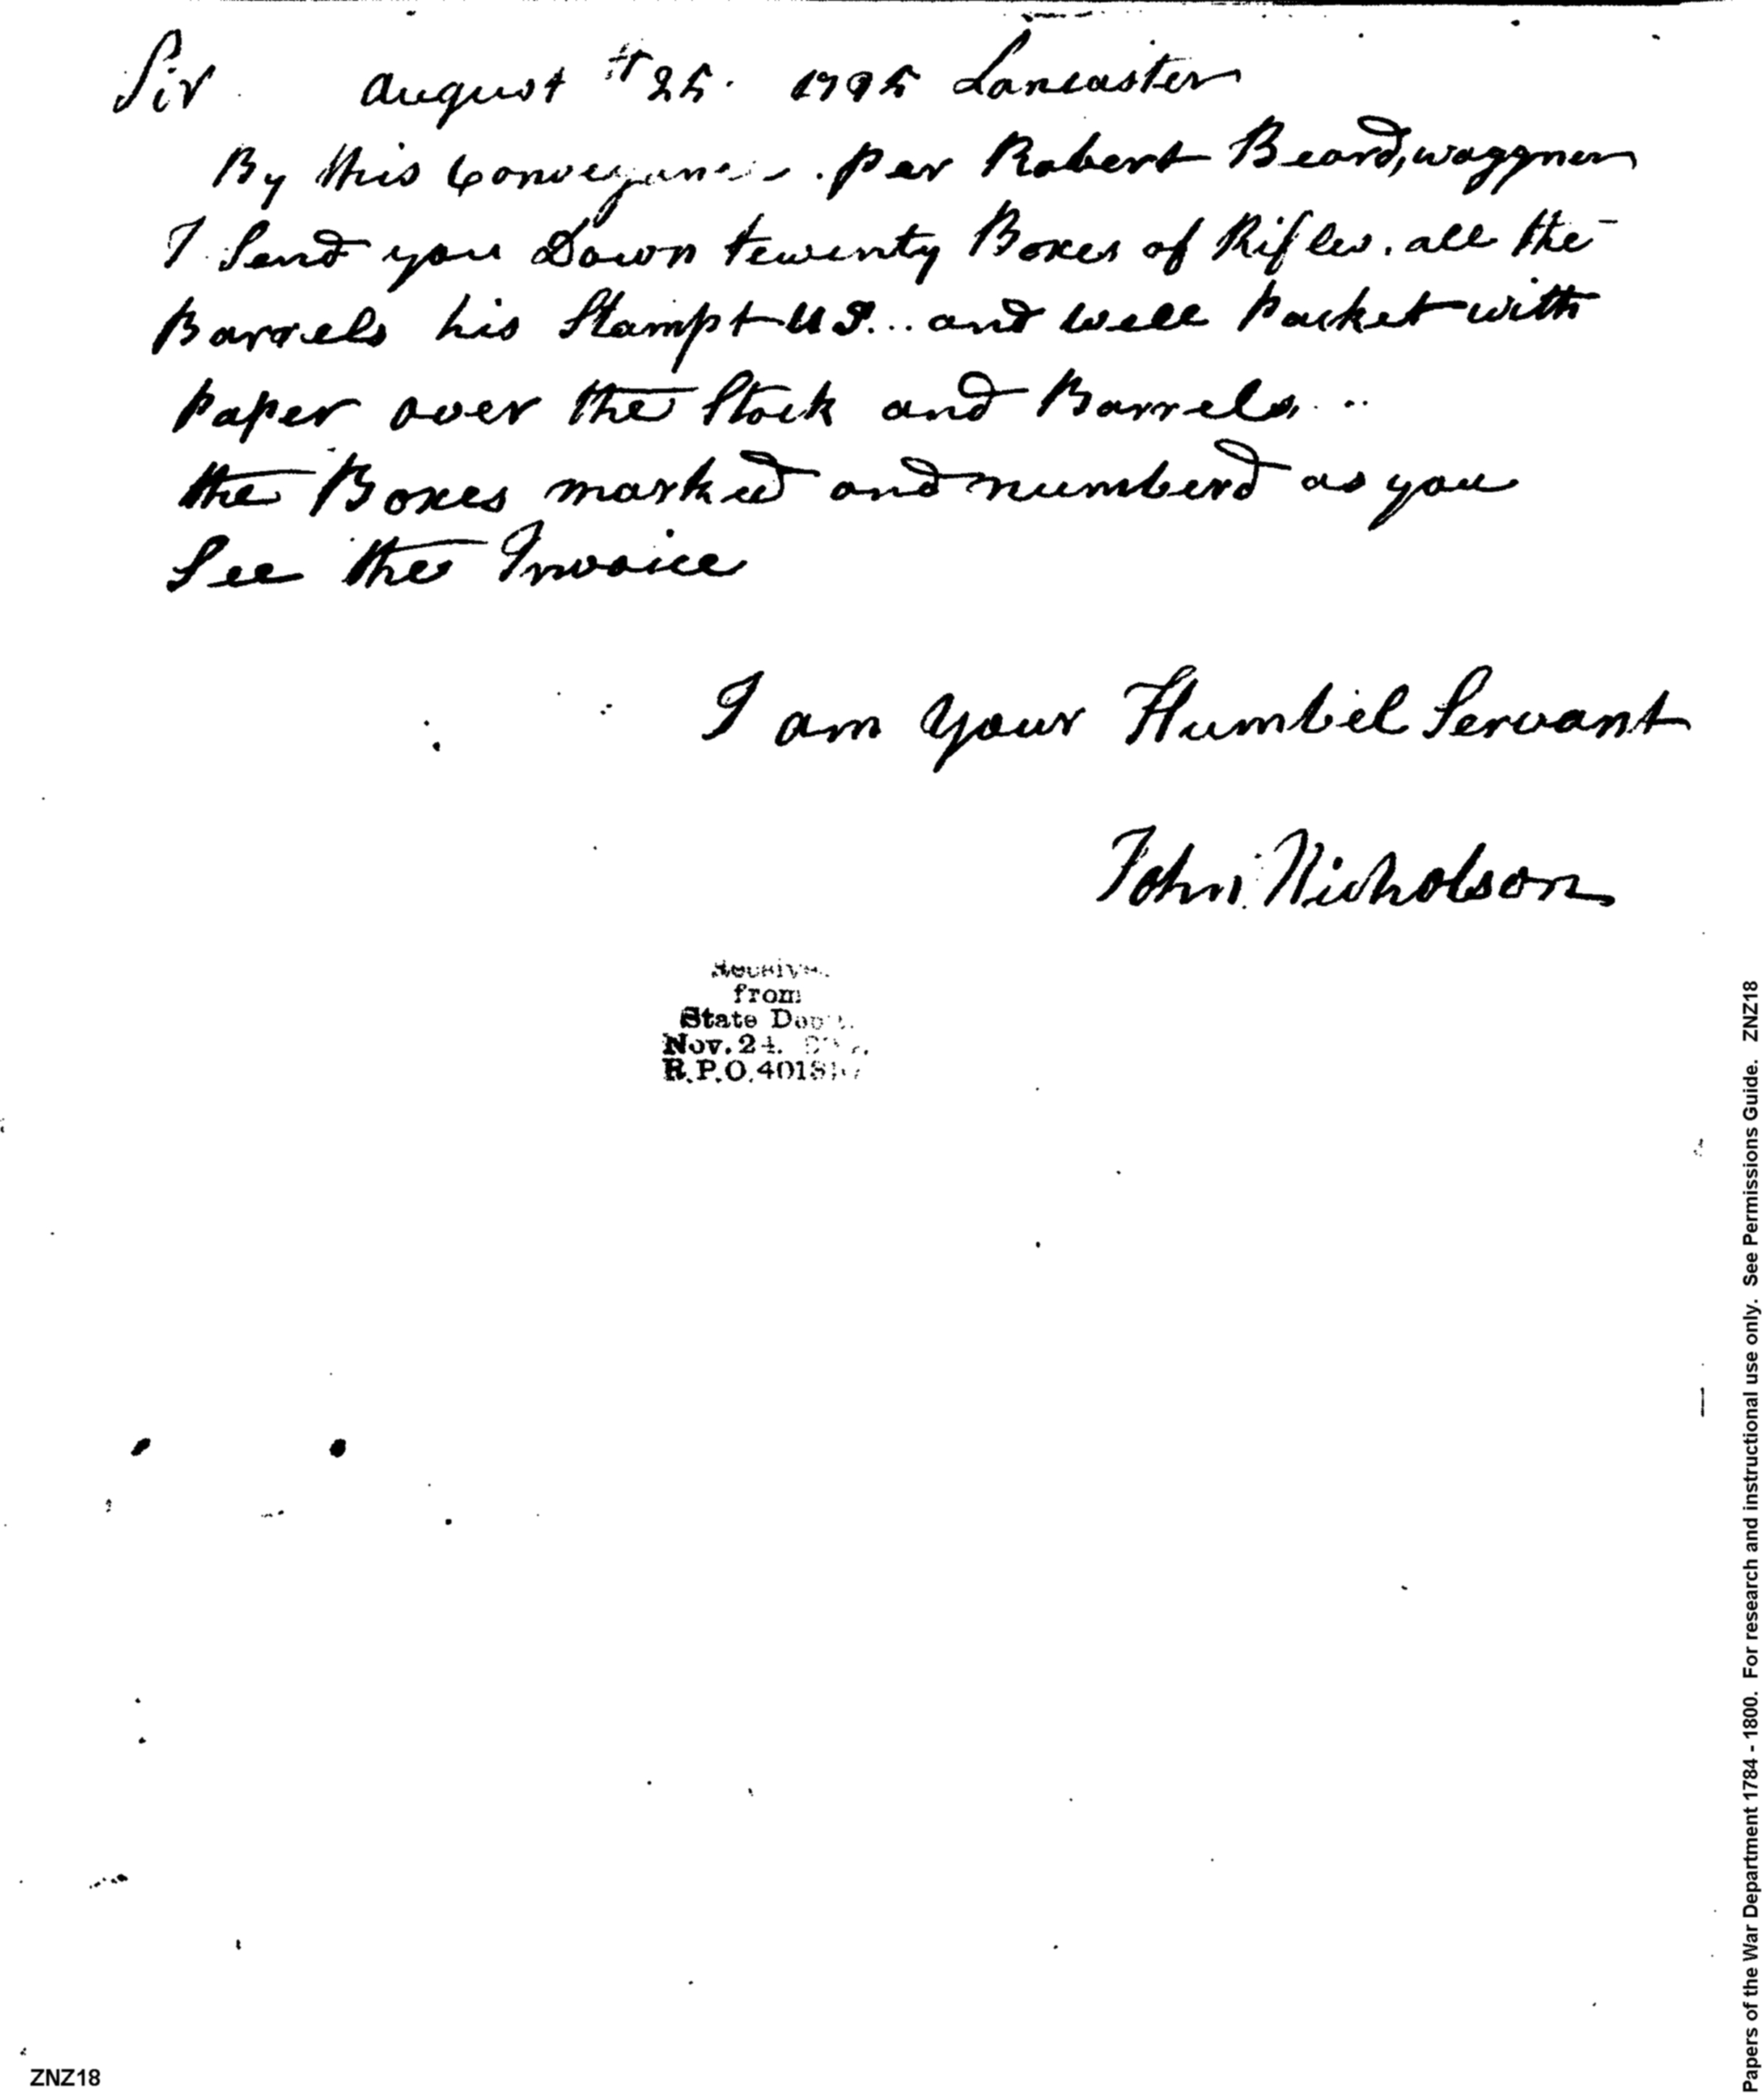 Sir August 25. 1795 Lancaster
By this Conveyance per Robert Beard, waggner
I Send you Down twenty Boxes of Rifles. all the
Barrels his Stampt U S... and well packet with
paper over the Stock and Barrels...
the Boxes marked and numberd as you
See the Invoice
I am your Humbel Servant
John Nicholson
from
State Dept.
Nov. 24.
R.P.O.
Papers of the War Department 1784 - 1800. For research and instructional use only. See Permissions Guide. ZNZ18
ZNZ18